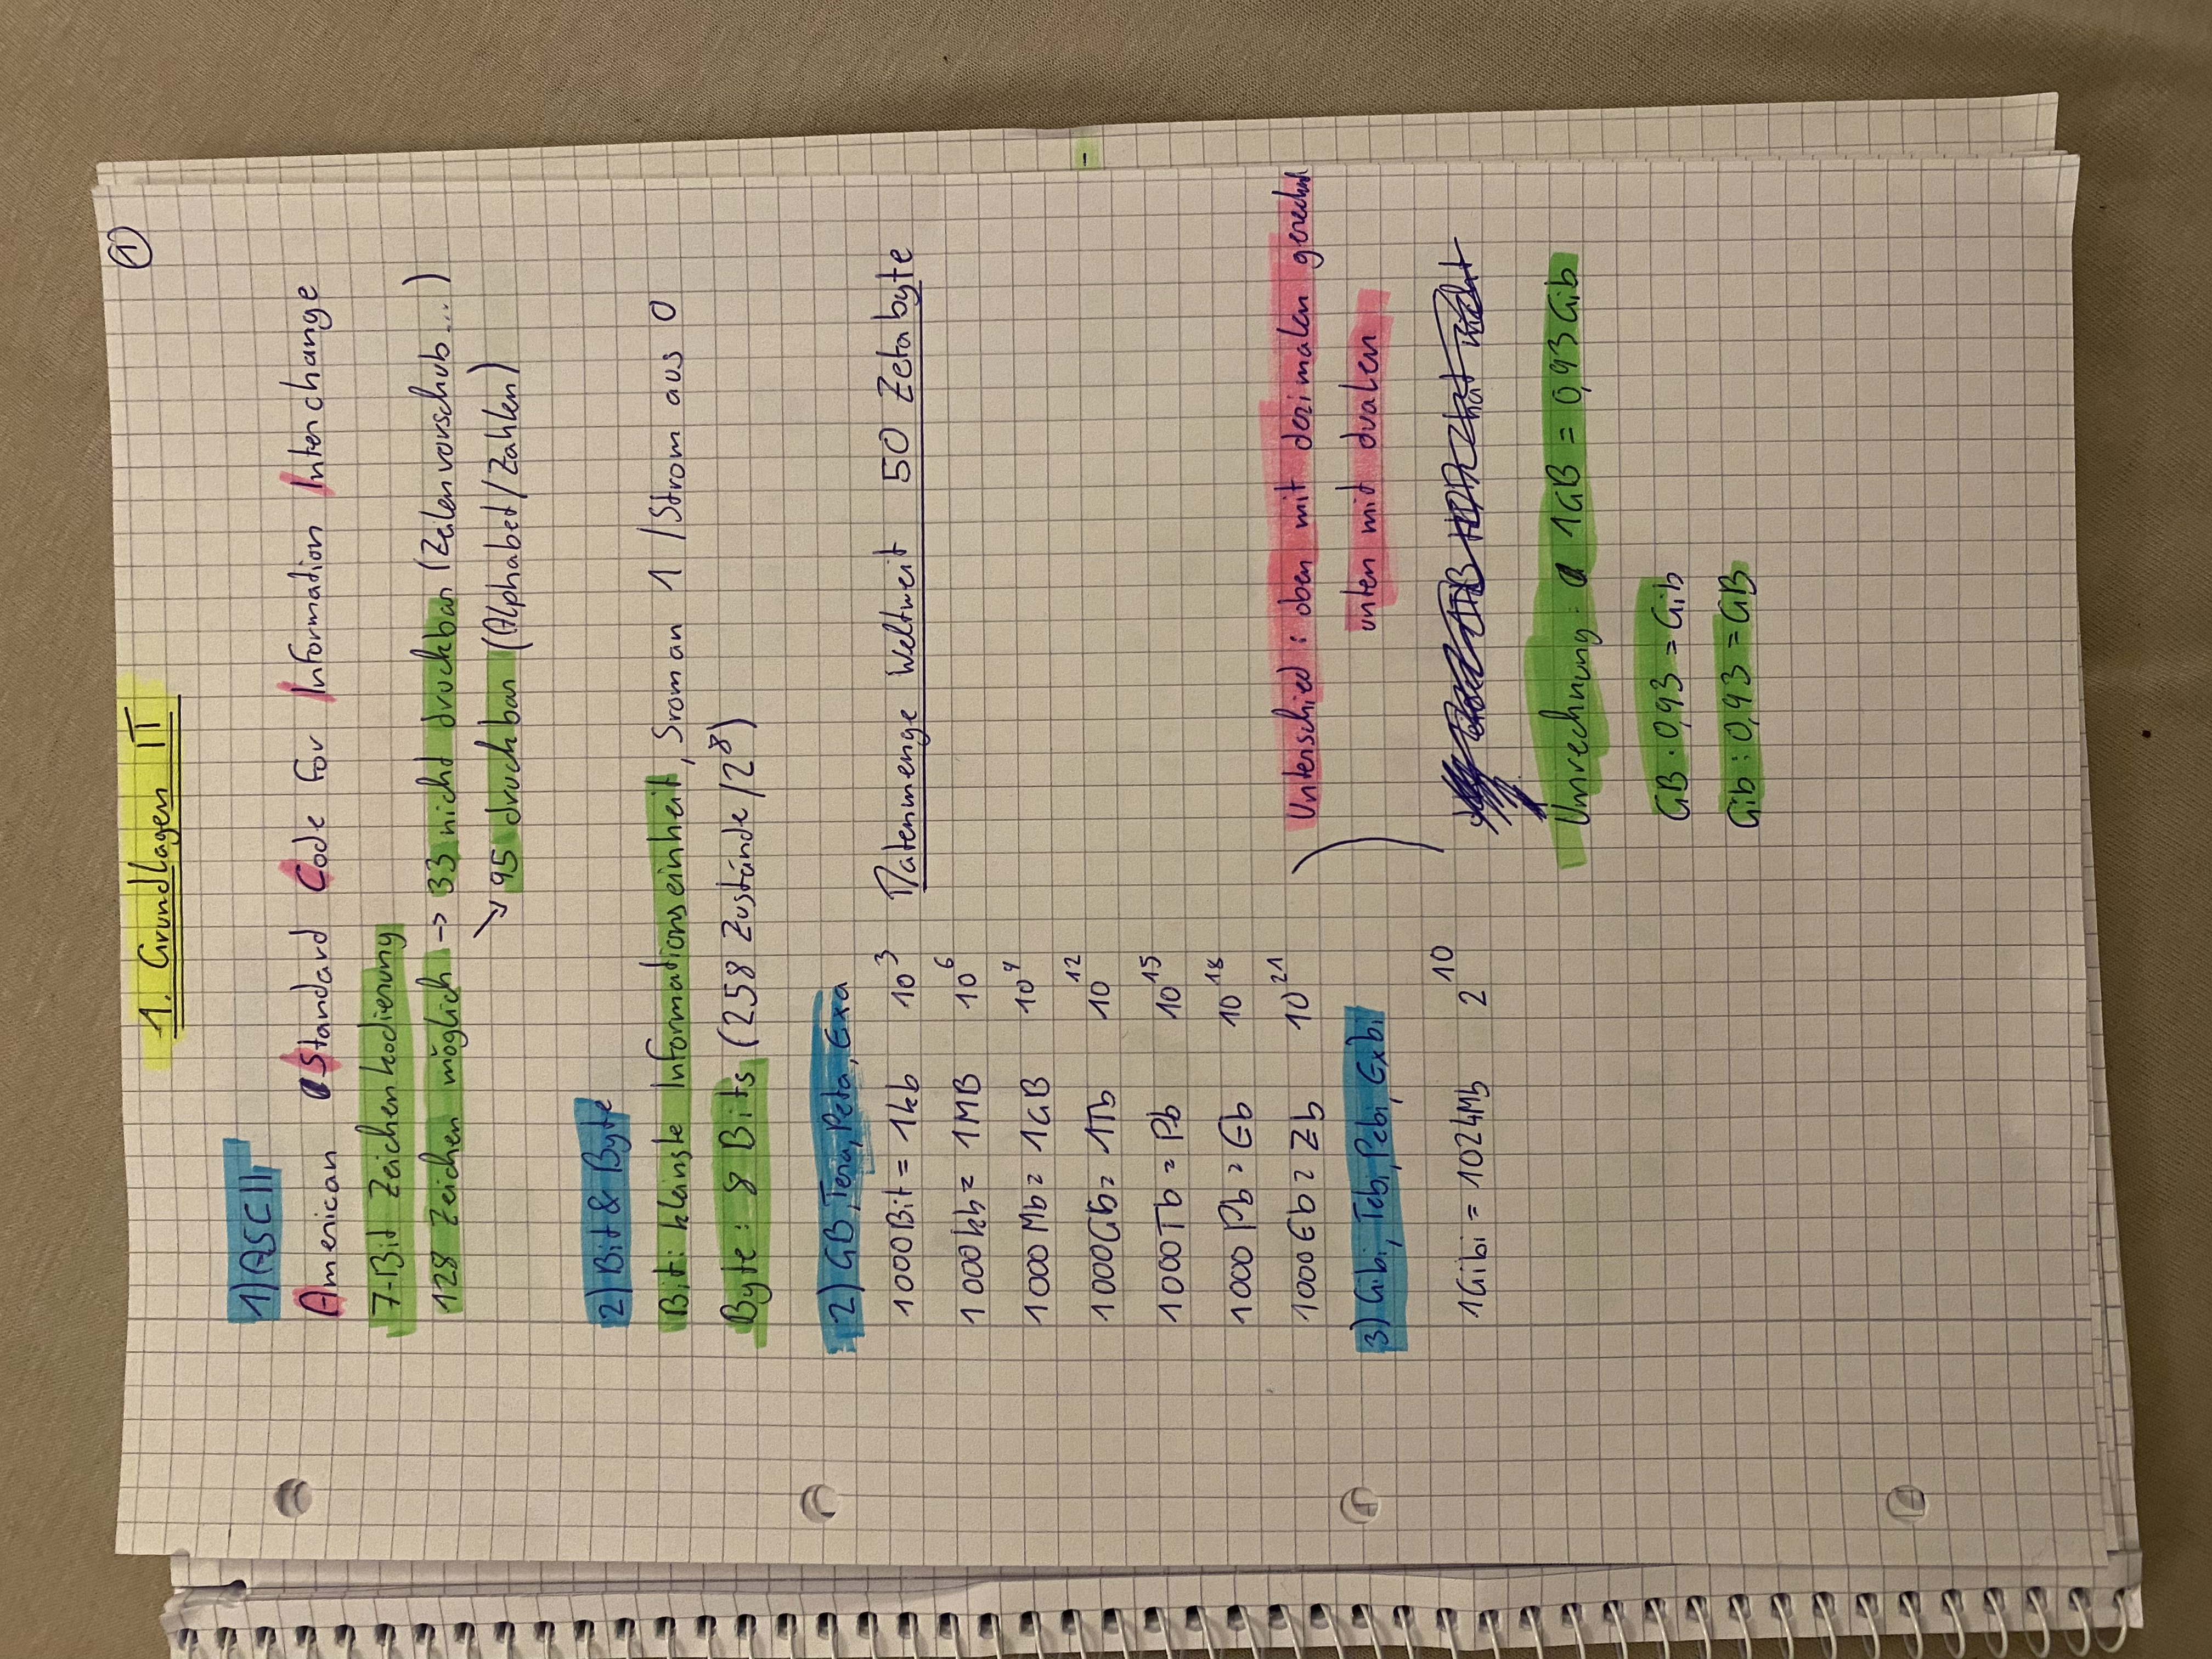 1
1. Grundlagen IT
1) ASCII
American Standard Code for Information Interchange
7-Bit Zeichenkodierung
128 Zeichen möglich → 33 nicht druckbar (Zeilenvorschub...)
↘ 95 druckbar (Alphabet/Zahlen)
2) Bit & Byte
Bit: kleinste Informationseinheit, Srom an 1 / Strom aus 0
Byte: 8 Bits (258 Zustände / 2⁸)
2) GB, Tera, Peta, Exa
1000Bit = 1kb 10³ Datenmenge Weltweit 50 Zetabyte
1000kb = 1MB 10⁶
1000 Mb = 1GB 10⁹
1000Gb = 1Tb 10¹²
1000Tb = Pb 10¹⁵
1000 Pb = Eb 10¹⁸
1000Eb = Zb 10²¹
Unterschied: oben mit dezimalen
3) Gibi, Tebi, Pebi, Exbi
unten mit dualen
1Gibi = 1024Mb 2¹⁰
1TB hat nicht
Umrechnung: 1GB = 0,93Gib
GB · 0,93 = Gib
Gib : 0,93 = GB